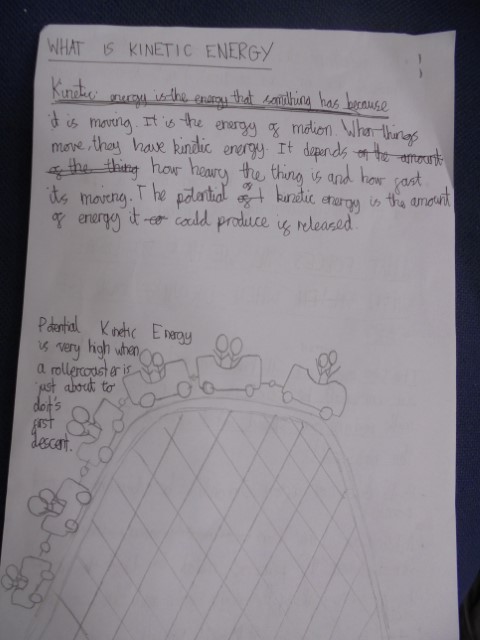 WHAT IS KINETIC ENERGY
Kinetic energy is the energy that something has because
it is moving. It is the energy of motion. When things
move, they have kinetic energy. It depends on the amount
of the thing how heavy the thing is and how fast
its moving. The potential of kinetic energy is the amount
of energy it could produce if released.
Potential Kinetic Energy
is very high when
a rollercoaster is
just about to
do it's
first
descent.